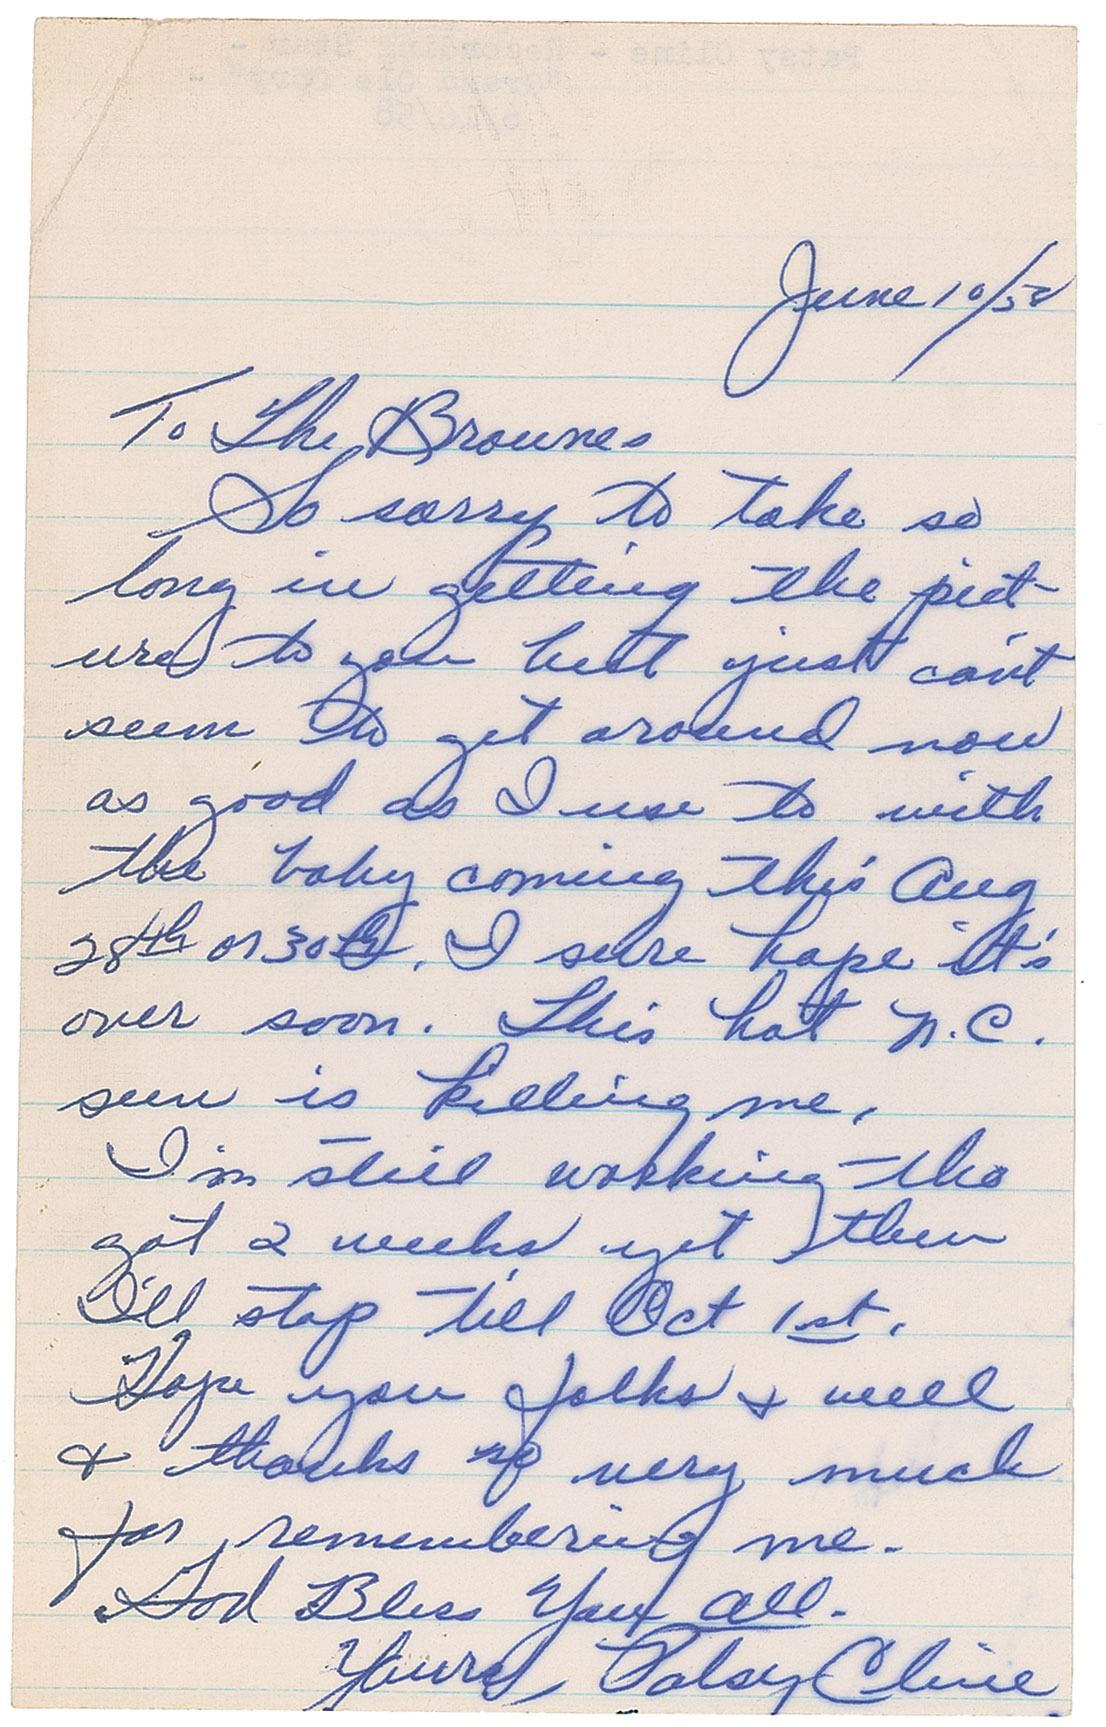 Patsy Cline - Recording Star -
"Grand Ole Opry" -
6/10/58
June 10/58
To The Brownes
So sorry to take so
long in getting the pict-
ure to you but just can't
seem to get around now
as good as I use to with
the baby coming this Aug
28th or 30th. I sure hope it's
over soon. This hot N.C.
sun is killing me.
I'm still working tho
got 2 weeks yet then
I'll stop 'till Oct 1st.
Hope you folks r well
& thanks so very much
for remembering me.
God Bless You all.
Yours, Patsy Cline